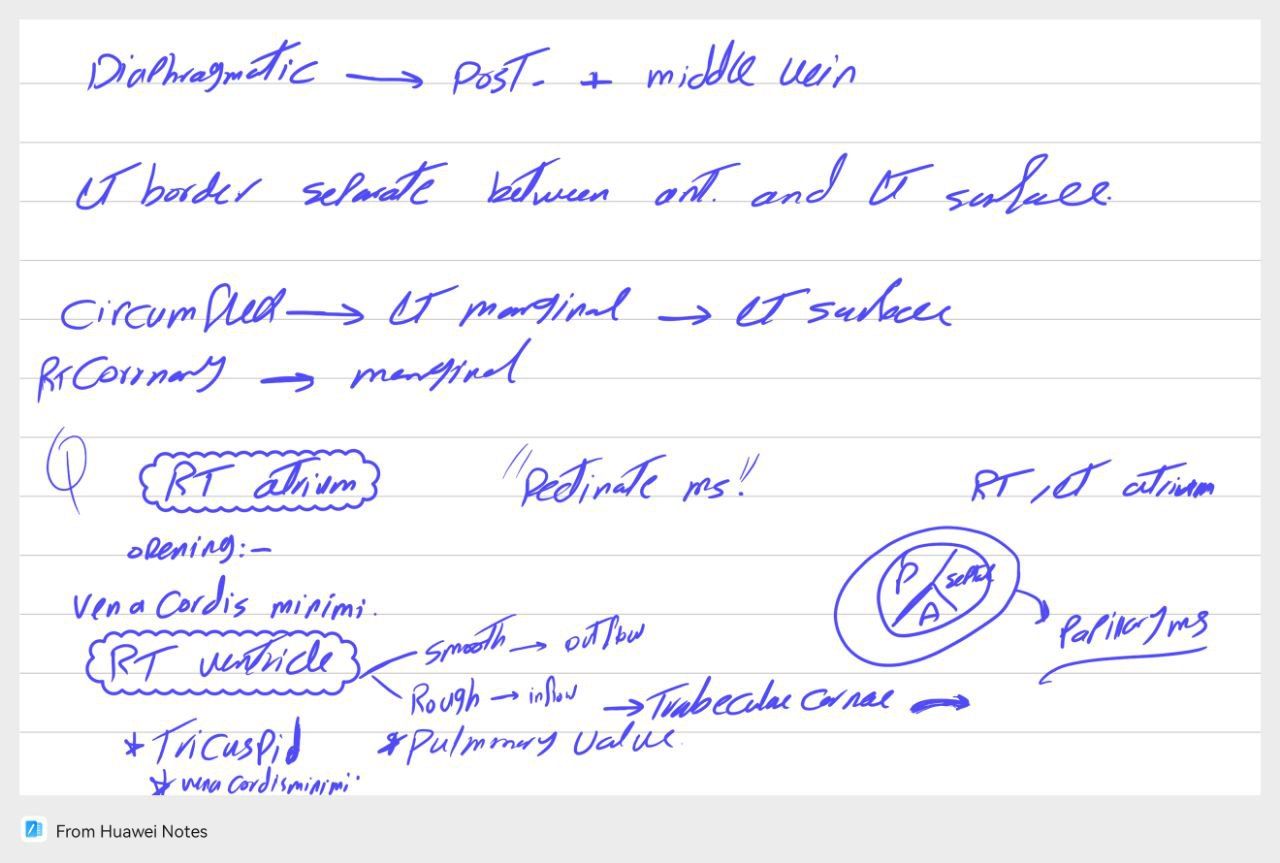 Diaphragmatic → Post. + middle vein
LT border separate between ant. and LT surface.
Circumflex → LT marginal → LT surface
RT Coronary → marginal
Q RT atrium "Pectinate ms." RT, LT atrium
opening:-
vena Cordis minimi.
P septal A
Papillary ms
RT ventricle
smooth → outflow
Rough → inflow → Trabeculae carnae →
* Tricuspid * Pulmonary valve.
* vena cordis minimi
From Huawei Notes